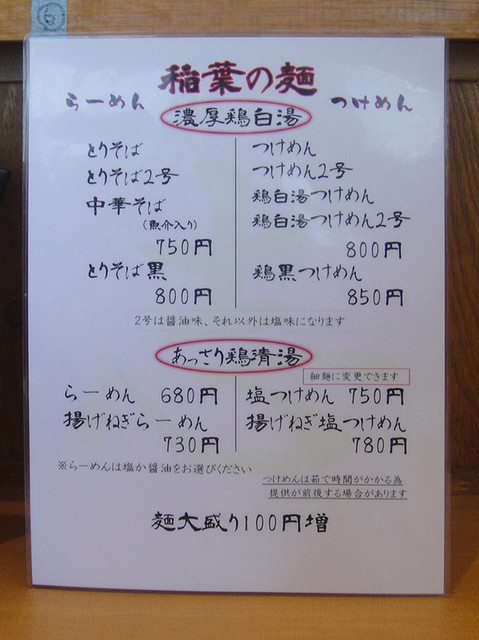 6
稲葉の麺
らーめん
つけめん
濃厚鶏白湯
とりそば
とりそば2号
中華そば
(魚介入り)
750円
とりそば黒
800円
つけめん
つけめん2号
鶏白湯つけめん
鶏白湯つけめん2号
800円
鶏黒つけめん
850円
2号は醤油味、それ以外は塩味になります
あっさり鶏清湯
細麺に変更できます
らーめん 680円
揚げねぎらーめん
730円
塩つけめん 750円
揚げねぎ塩つけめん
780円
※らーめんは塩か醤油をお選びください
つけめんは茹で時間がかかる為
提供が前後する場合があります
麺大盛り100円増